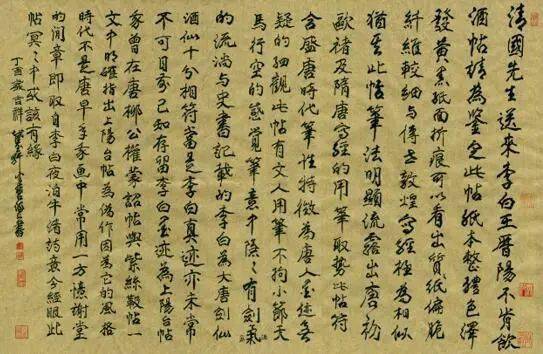 清國先生送來李白王厝陽不肯飲
酒帖請為鑒定此帖紙本整體色澤
發黃黑紙面折痕可以看出質紙偏脆
纖維較細与傳世敦煌寫經極為相似
猶其此帖筆法明顯流露出唐初
歐褚及隋唐寫經的用筆取勢此帖符
合盛唐時代筆性特徵為唐人墨迹無
疑的細觀此帖有文人用筆不拘小節天
馬行空的感覺筆意中隱之有劍氣
的流淌与史書記載的李白為大唐劍仙
酒仙十分相符當是李白真迹亦未常
不可目前已知存留李白墨迹為上陽台帖
家曾在唐柳公權蒙詔帖與紫絲靸帖一
文中明確指出上陽台帖為偽作因為它的風格
時代不是唐早年家画中常用一方憶謝堂
的閒章即取自李白夜泊牛渚詩意今經眼此
帖冥之中或該有緣
丁酉歲吉祥